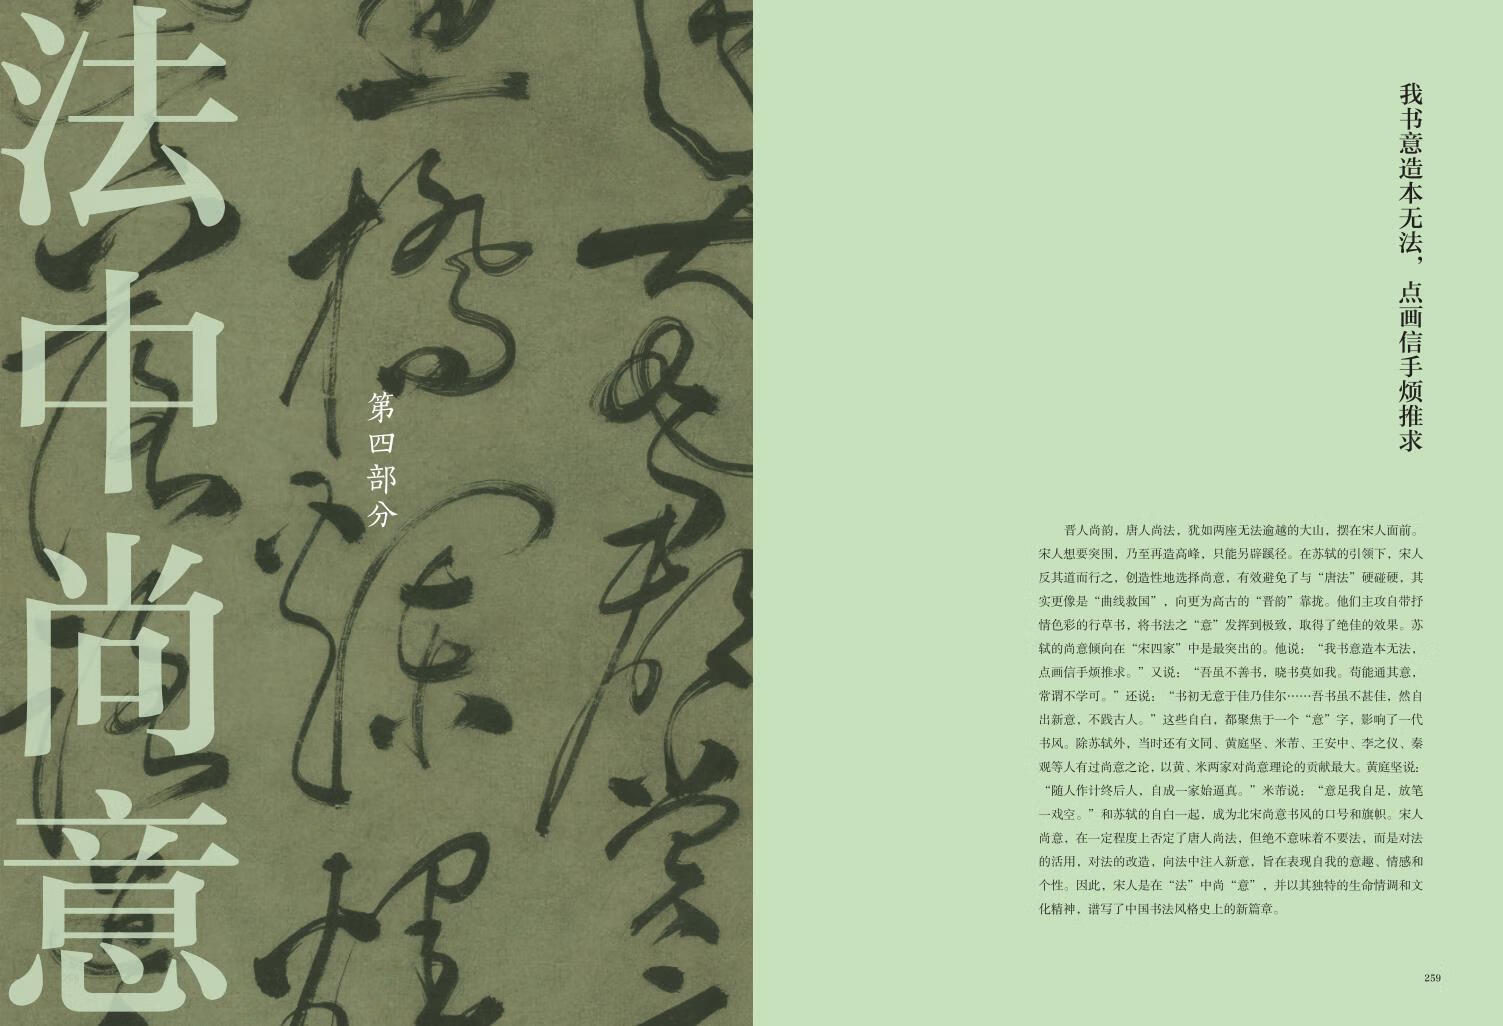 法中尚意
第四部分
我书意造本无法，点画信手烦推求
晋人尚韵，唐人尚法，犹如两座无法逾越的大山，摆在宋人面前。
宋人想要突围，乃至再造高峰，只能另辟蹊径。在苏轼的引领下，宋人
反其道而行之，创造性地选择尚意，有效避免了与“唐法”硬碰硬，其
实更像是“曲线救国”，向更为高古的“晋韵”靠拢。他们主攻自带抒
情色彩的行草书，将书法之“意”发挥到极致，取得了绝佳的效果。苏
轼的尚意倾向在“宋四家”中是最突出的。他说：“我书意造本无法，
点画信手烦推求。”又说：“吾虽不善书，晓书莫如我。苟能通其意，
常谓不学可。”还说：“书初无意于佳乃佳尔……吾书虽不甚佳，然自
出新意，不践古人。”这些自白，都聚焦于一个“意”字，影响了一代
书风。除苏轼外，当时还有文同、黄庭坚、米芾、王安中、李之仪、秦
观等人有过尚意之论，以黄、米两家对尚意理论的贡献最大。黄庭坚说：
“随人作计终后人，自成一家始逼真。”米芾说：“意足我自足，放笔
一戏空。”和苏轼的自白一起，成为北宋尚意书风的口号和旗帜。宋人
尚意，在一定程度上否定了唐人尚法，但绝不意味着不要法，而是对法
的活用，对法的改造，向法中注入新意，旨在表现自我的意趣、情感和
个性。因此，宋人是在“法”中尚“意”，并以其独特的生命情调和文
化精神，谱写了中国书法风格史上的新篇章。
259